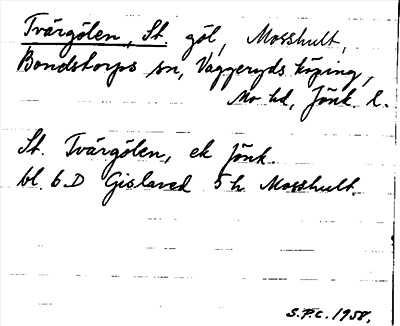 Tvärgölen, St. göl, Mosshult,
Bondstorps sn, Vaggeryds köping,
Mo hd, Jönk. l.
St. Tvärgölen, ek Jönk.
bl. 6 D Gislaved 5 h Mosshult.
S.F.C. 1958.